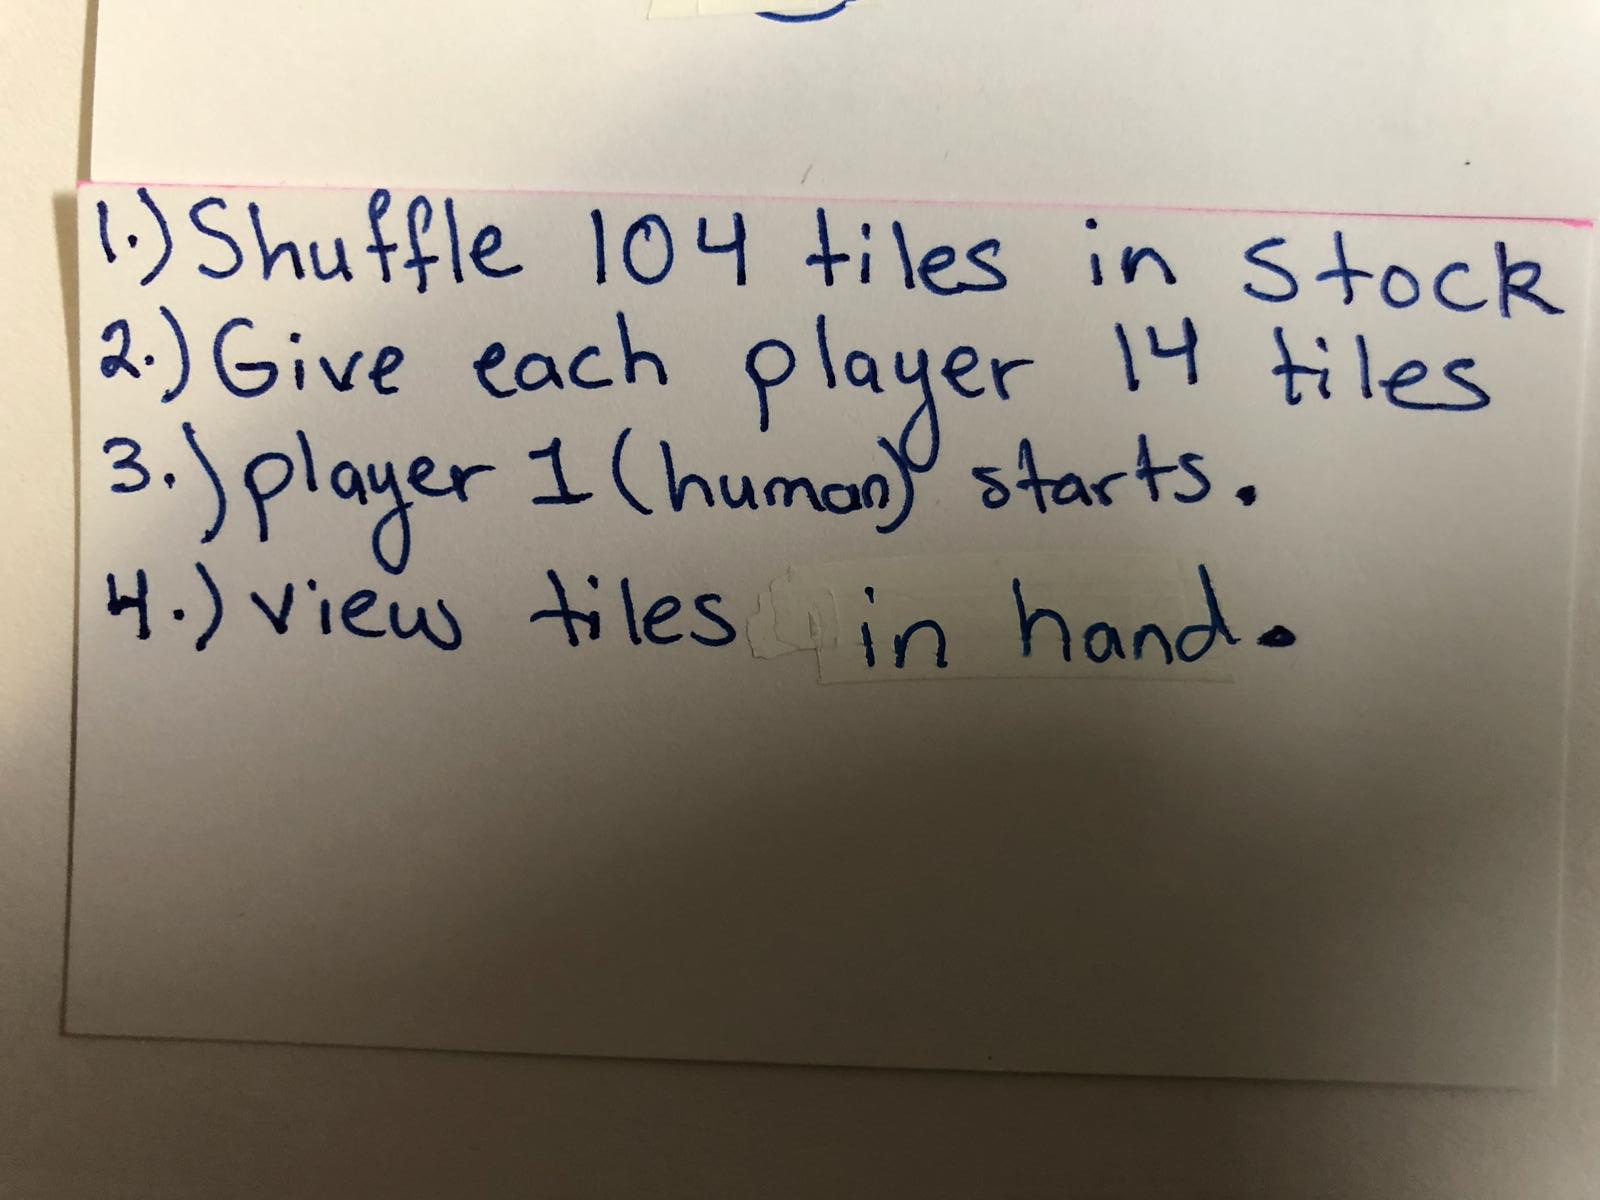 1.) Shuffle 104 tiles in stock
2.) Give each player 14 tiles
3.) player 1 (human) starts.
4.) view tiles in hand.